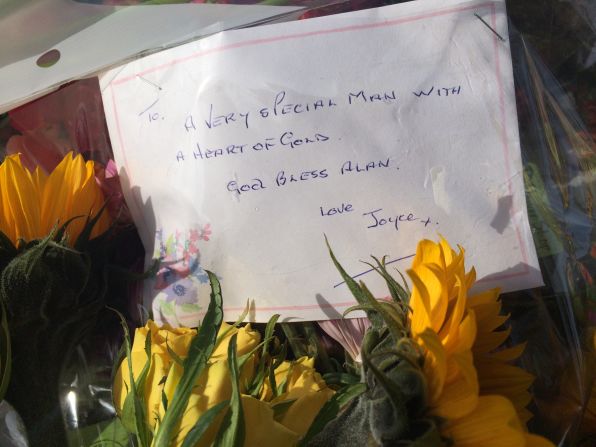 To. A VERY SPECIAL MAN WITH
A HEART OF GOLD.
GOD BLESS ALAN.
LOVE
Joyce x.